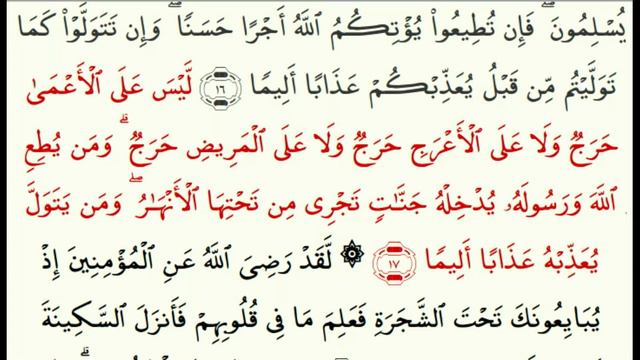 يُسْلِمُونَ ۖ فَإِن تُطِيعُوا۟ يُؤْتِكُمُ ٱللَّهُ أَجْرًا حَسَنًا ۖ وَإِن تَتَوَلَّوْا۟ كَمَا
تَوَلَّيْتُم مِّن قَبْلُ يُعَذِّبْكُمْ عَذَابًا أَلِيمًا ١٦ لَّيْسَ عَلَى ٱلْأَعْمَىٰ
حَرَجٌ وَلَا عَلَى ٱلْأَعْرَجِ حَرَجٌ وَلَا عَلَى ٱلْمَرِيضِ حَرَجٌ ۗ وَمَن يُطِعِ
ٱللَّهَ وَرَسُولَهُۥ يُدْخِلْهُ جَنَّـٰتٍ تَجْرِى مِن تَحْتِهَا ٱلْأَنْهَـٰرُ ۖ وَمَن يَتَوَلَّ
يُعَذِّبْهُ عَذَابًا أَلِيمًا ١٧ ۞ لَّقَدْ رَضِىَ ٱللَّهُ عَنِ ٱلْمُؤْمِنِينَ إِذْ
يُبَايِعُونَكَ تَحْتَ ٱلشَّجَرَةِ فَعَلِمَ مَا فِى قُلُوبِهِمْ فَأَنزَلَ ٱلسَّكِينَةَ